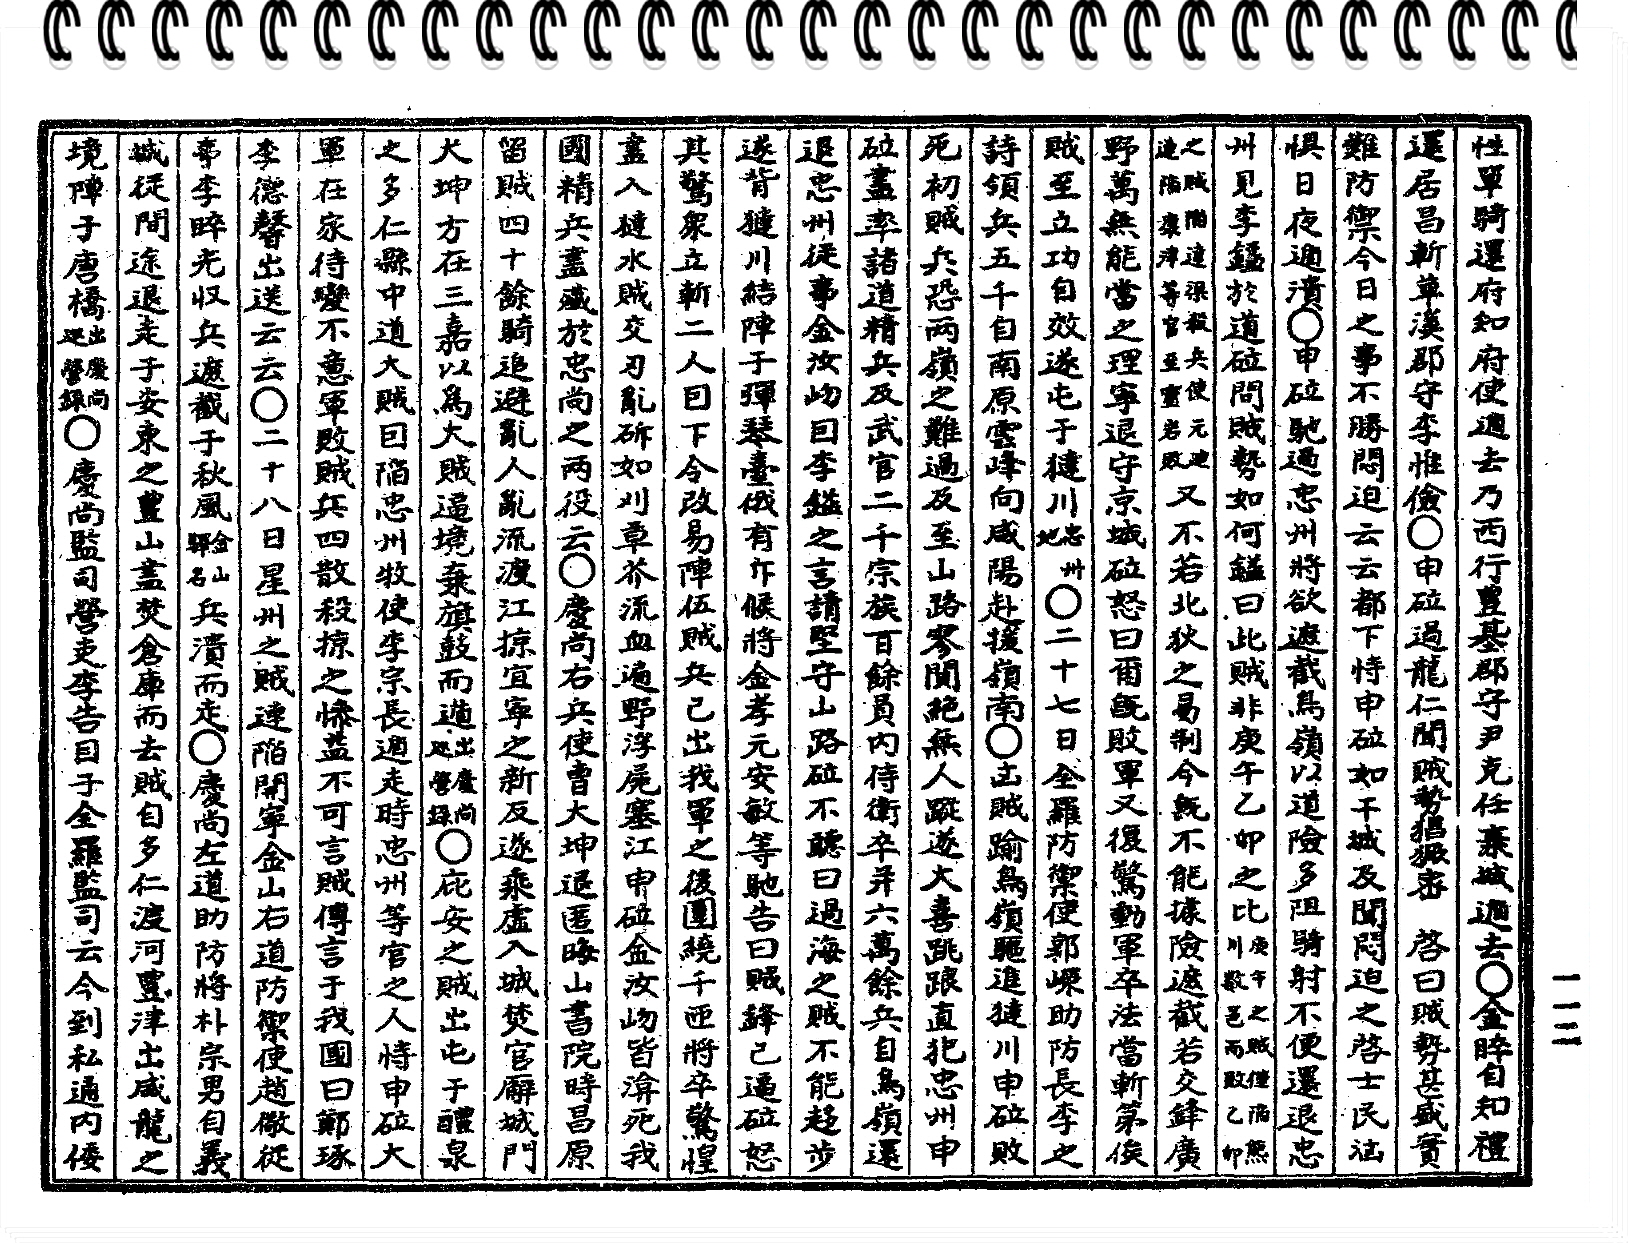 性單騎還府知府使遁去乃西行豊基郡守尹克任棄城遁去〇金睟自知禮
還居昌斬草溪郡守李惟儉〇申砬過龍仁聞賊勢猖獗密 啓曰賊勢甚盛實
難防禦今日之事不勝悶迫云云都下恃申砬如干城及聞悶迫之啓士民洶
惧日夜遁潰〇申砬馳過忠州將欲遮截鳥嶺以道險多阻騎射不便還退忠
州見李鎰於道砬問賊勢如何鎰曰此賊非庚午乙卯之比庚午之賊僅陷熊川數邑而敗乙卯
之賊陷達梁殺兵使元達連陷康津等官至靈岩敗又不若北狄之易制今旣不能據險遮截若交鋒廣
野萬無能當之理寧退守京城砬怒曰爾旣敗軍又復驚動軍卒法當斬第俟
賊至立功自效遂屯于㺚川忠州地〇二十七日全羅防禦使郭嶸助防長李之
詩領兵五千自南原雲峰向咸陽赴援嶺南〇出賊踰鳥嶺驅進㺚川申砬敗
死初賊兵恐兩嶺之難過及至山路寥閴絕無人蹤遂大喜跳踉直犯忠州申
砬盡率諸道精兵及武官二千宗族百餘員內侍衛卒并六萬餘兵自鳥嶺還
退忠州從事金汝岉曰李鎰之言請堅守山路砬不聽曰過海之賊不能趍步
遂背㺚川結陣于彈琴臺俄有斥候將金孝元安敏等馳告曰賊鋒已逼砬怒
其驚衆立斬二人曰下令改易陣伍賊兵已出我軍之後圍繞千匝將卒驚惶
盡入㺚水賊交刃亂斫如刈草芥流血遍野浮屍塞江申砬金汝岉皆渰死我
國精兵盡殲於忠尚之兩役云〇慶尚右兵使曺大坤退匿晦山書院時昌原
留賊四十餘騎追避亂人亂流渡江掠宜寧之新反遂乘虛入城焚官廨城門
大坤方在三嘉以爲大賊逼境棄旗鼓而遁出慶尚巡營錄〇庇安之賊出屯于醴泉
之多仁縣中道大賊曰陷忠州牧使李宗長遁走時忠州等官之人恃申砬大
軍在家待變不意軍敗賊兵四散殺掠之慘盖不可言賊傳言于我國曰鄭琢
李德馨出送云云〇二十八日星州之賊連陷開寧金山右道防禦使趙儆從
事李睟光収兵遮截于秋風金山驛名兵潰而走〇慶尚左道助防將朴宗男自義
城從間途退走于安東之豊山盡焚倉庫而去賊自多仁渡河豊津出咸龍之
境陣于唐橋出慶尚巡營錄〇慶尚監司營吏李告目于全羅監司云今到私通內倭
一一二